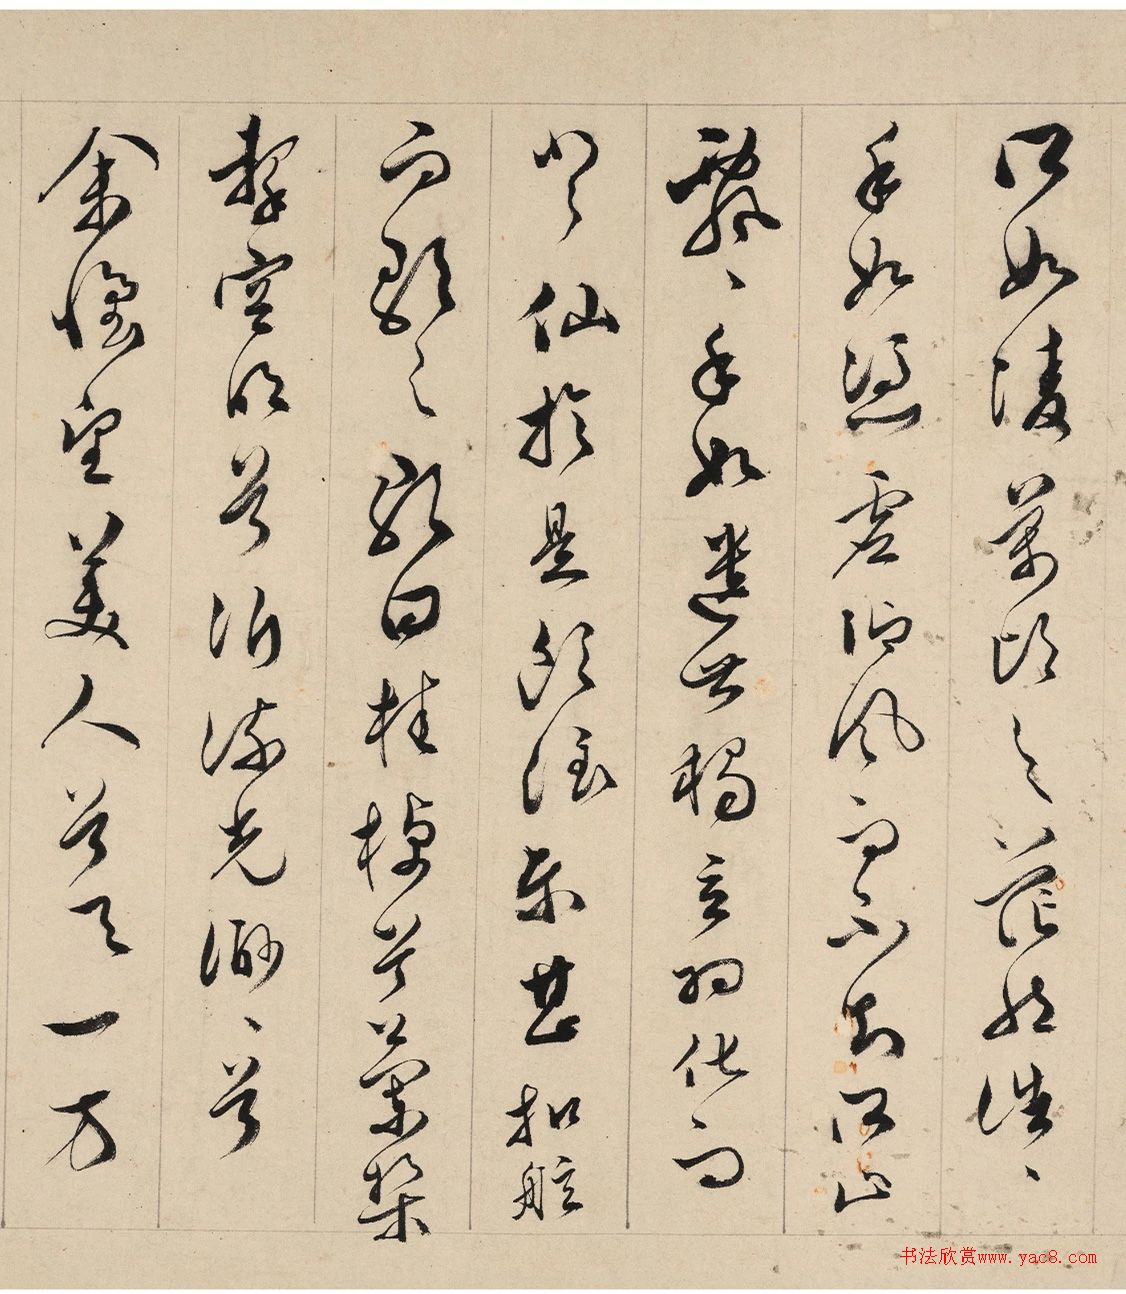 所如凌萬頃之茫然浩々
乎如憑虛御風而不知所止
飄々乎如遺世獨立羽化而
登仙於是飲酒樂甚扣舷
而歌之歌曰桂棹兮蘭槳
擊空明兮泝流光渺々兮
余懷望美人兮天一方
书法欣赏www.yac8.com